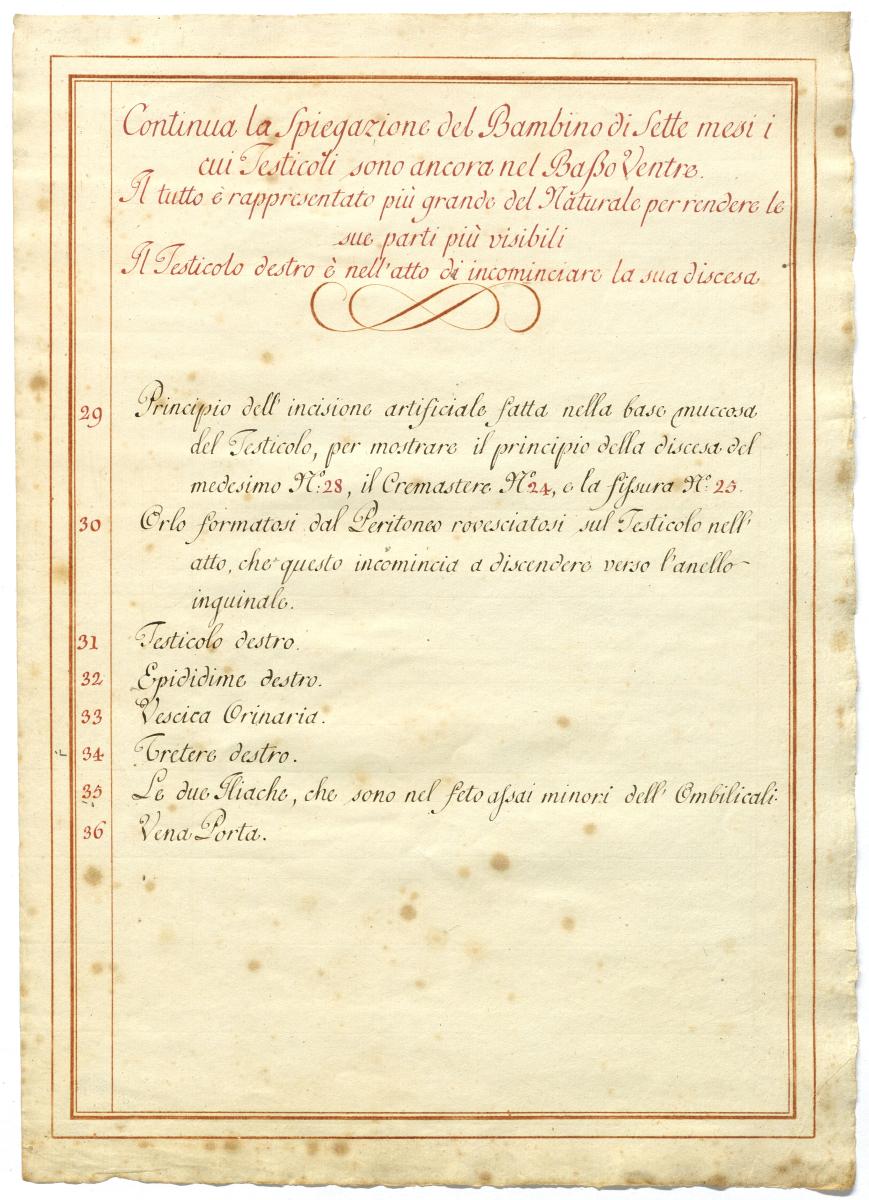 Continua la Spiegazione del Bambino di Sette mesi i
cui Testicoli sono ancora nel Baßo Ventre.
Il tutto è rappresentato più grande del Naturale per rendere le
sue parti più visibili
Il Testicolo destro è nell'atto di incominciare la sua discesa
29 Principio dell' incisione artificiale fatta nella base muccosa
del Testicolo, per mostrare il principio della discesa del
medesimo N.º 28, il Cremastere N.º 24, e la fiſsura N.º 25.
30 Orlo formatosi dal Peritoneo rovesciatosi sul Testicolo nell'
atto, che questo incomincia a discendere verso l'anello
inguinale.
31 Testicolo destro.
32 Epididime destro.
33 Vescica Orinaria.
34 Uretere destro.
35 Le due Iliache, che sono nel feto aſsai minori dell' Ombilicali.
36 Vena Porta.